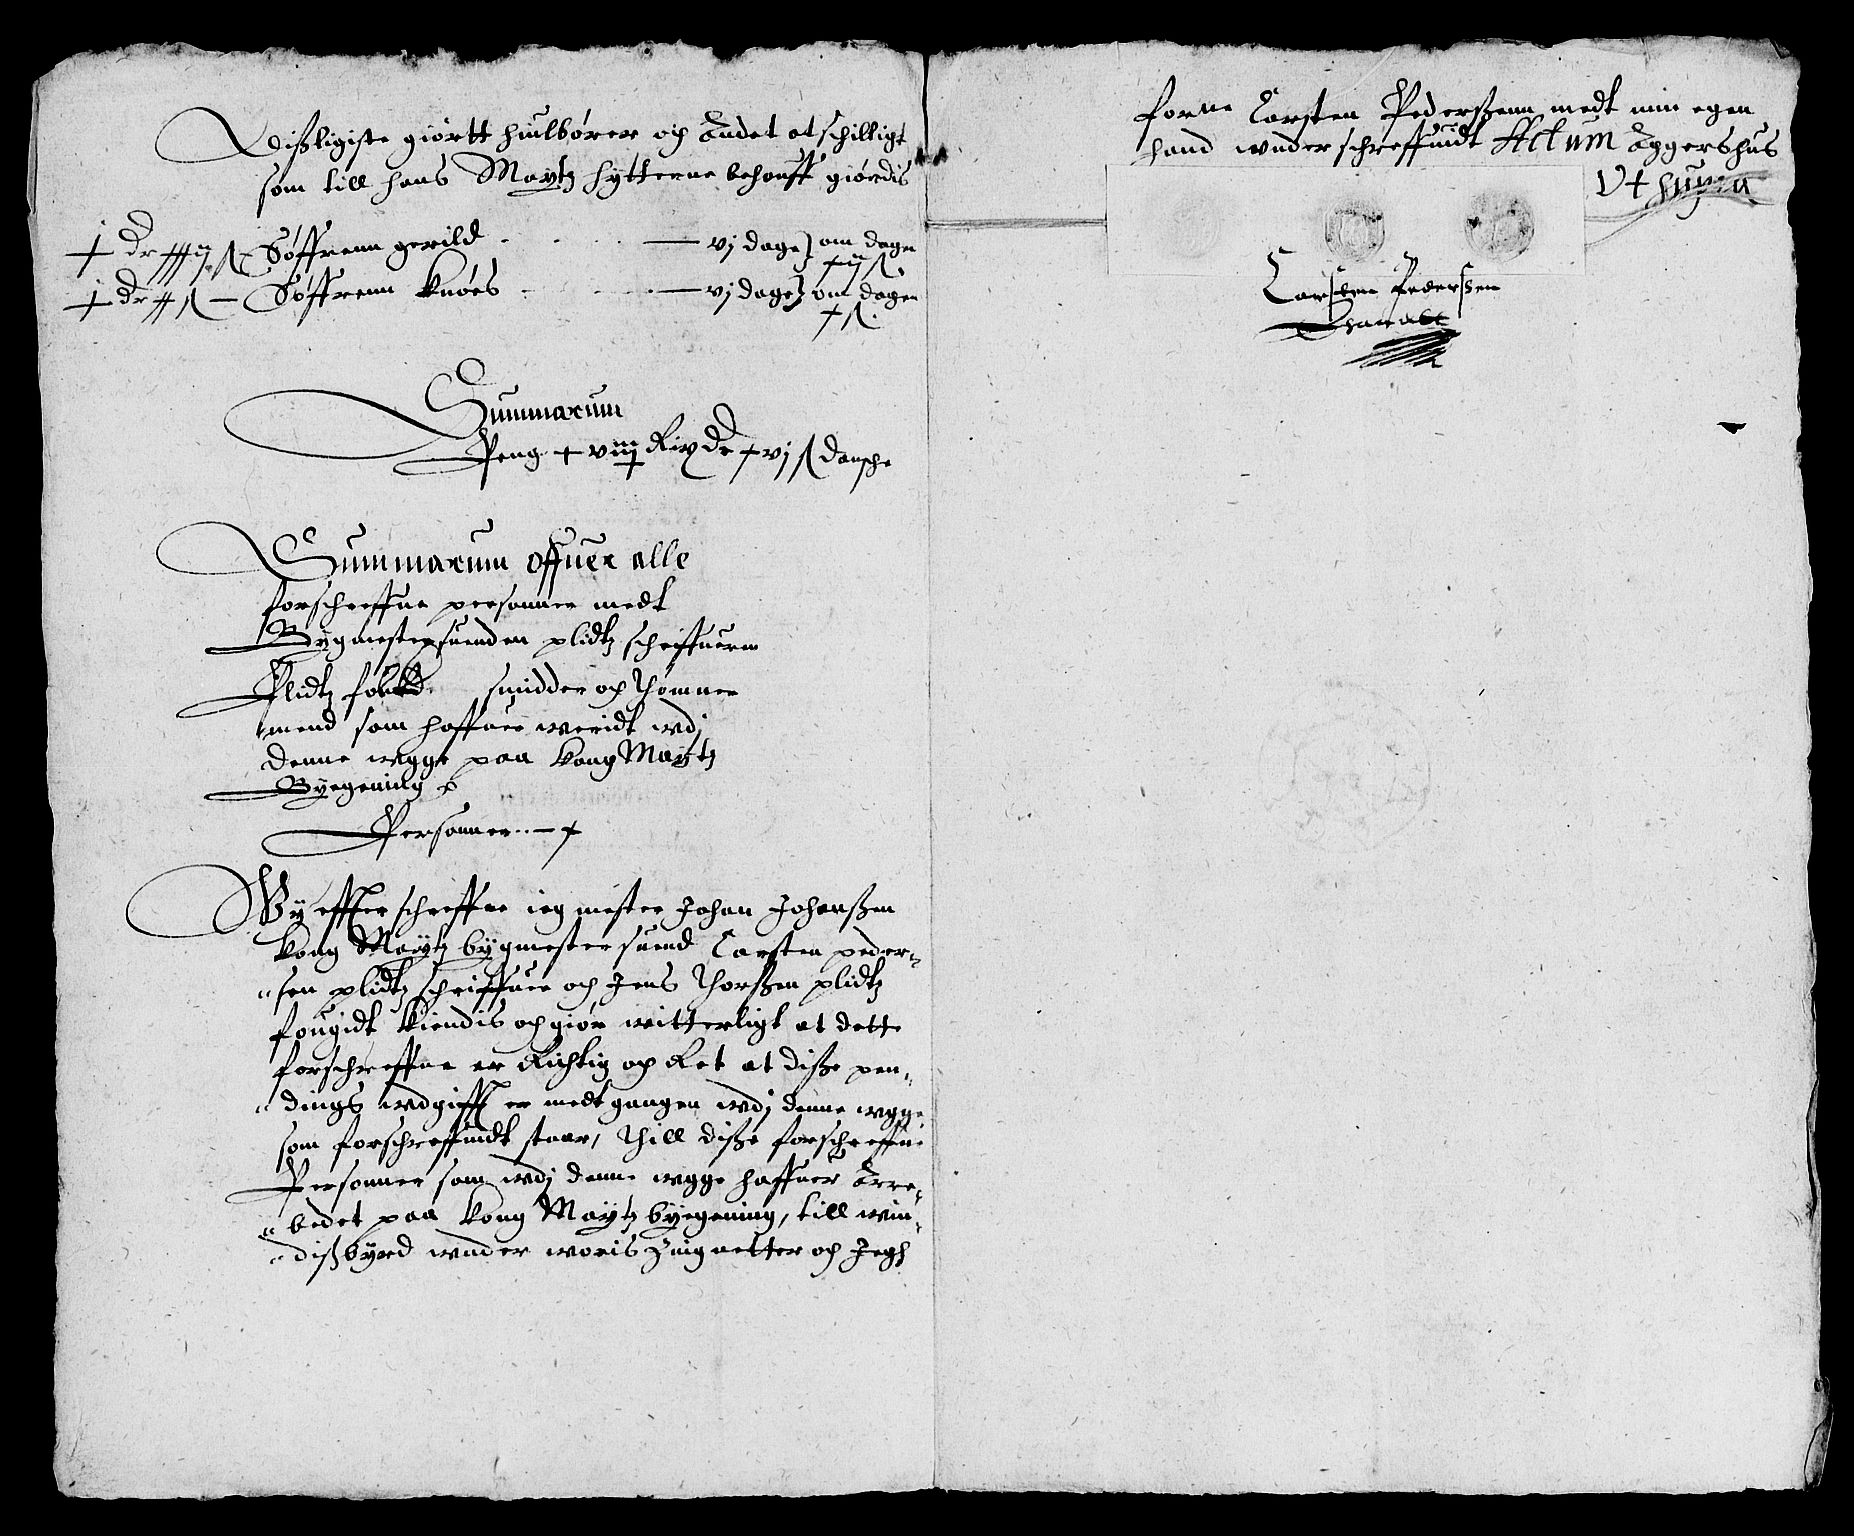 Dißligiste giørtt hiulbører och Andet atschilligt
som till hans Maytz hytterne behouff giørdis
Søffrenn gerild vj dage om dagen
Søffrenn knoes vj dage om dagen
Summarum
Peng viij Rix dr vj ß dansche
Summarum offuer alle
forschreffne personner medt
Bygmestersuenden plidtz schriffueren
Plidtz smidder och thømmer
mend som haffuer weridt wdj
denne wgge paa kong Maytz
Byegening
Personner
Wy effter schreffne ieg mester Johan Johanßen
kong Maytz bygmestersuend Carsten peder-
sen plidtz schriffuer och Jens Thorßen plidtz
fougidt kiendis och giør witterligt at dette
forschreffne er Richtig och Ret at diße pen-
dings wdgifft er medt gangen wdj denne wgge
som forschreffuidt staar, thill diße forschreffne
Personner som wdj denne wgge haffuer Arre-
bedet paa kong Maytz byegening, till win-
dißbyrd wnder woris Zingnetter och Jegh
forne Carsten Pederßenn medt min egen
hand wnder schreffuidt Actum Aggershus
Vt supra
Carsten Pederßen